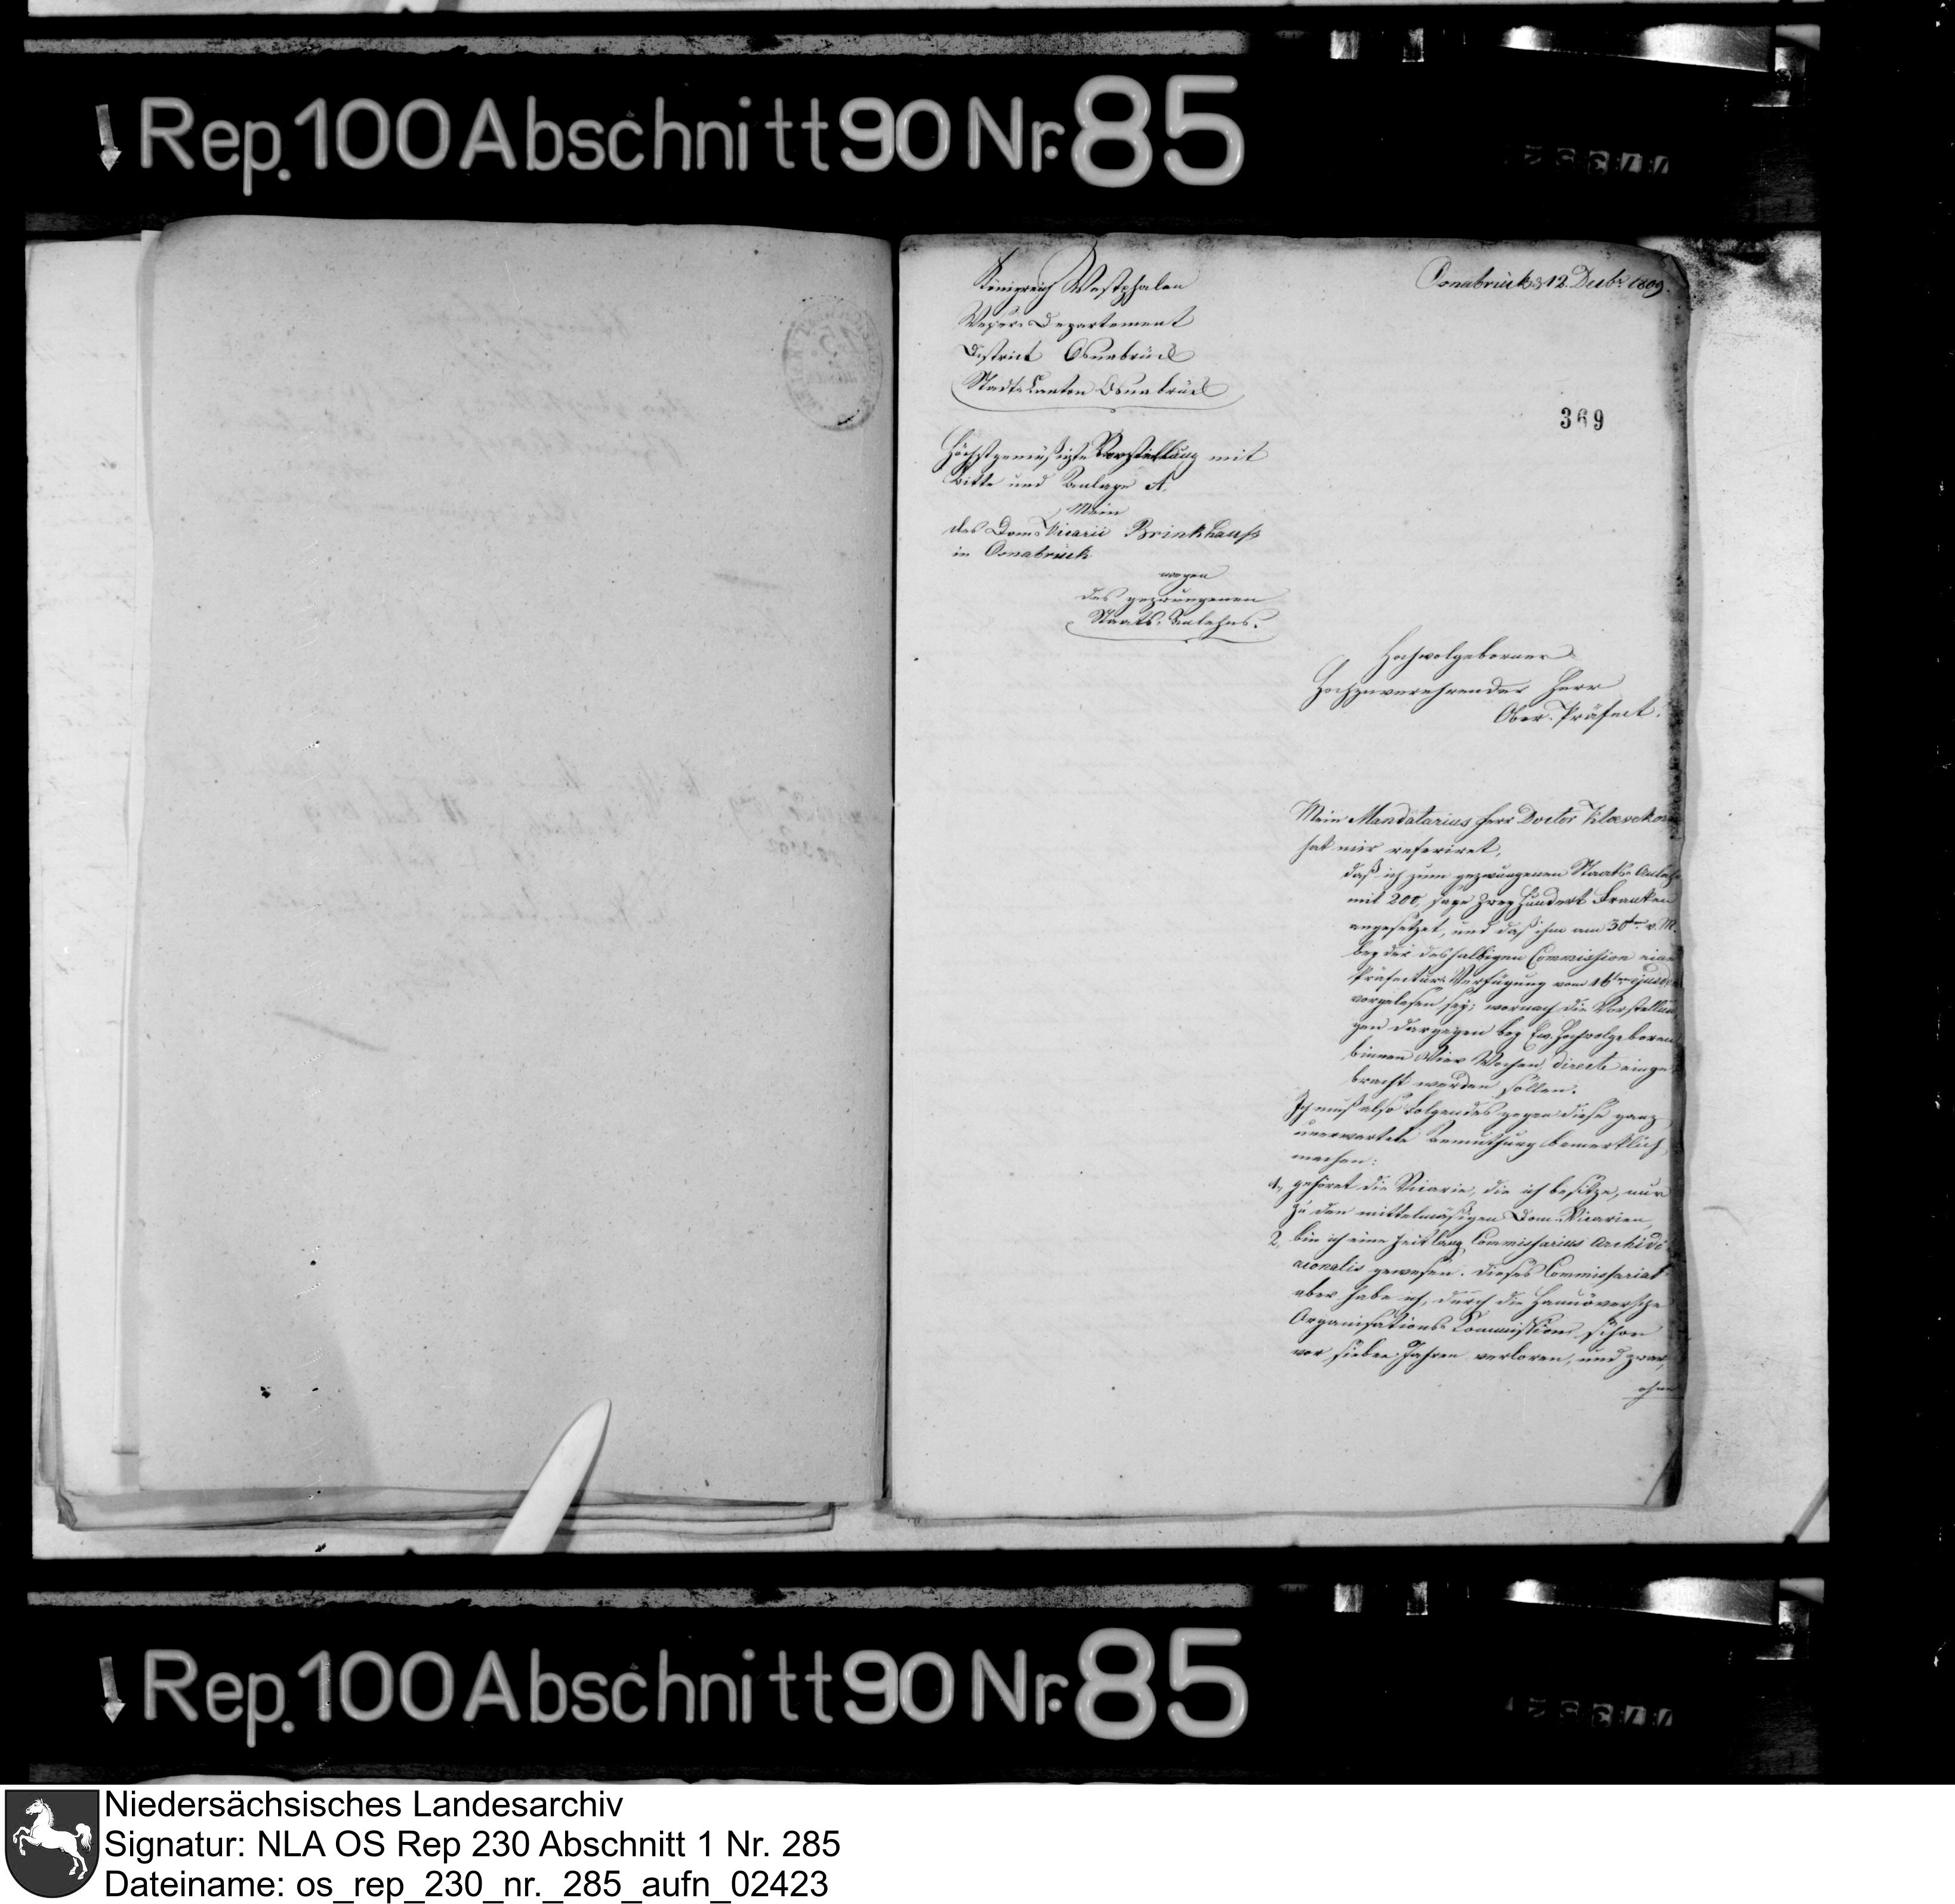 Rep. 100 Abschnitt 90 Nr. 85
Osnabrück d 12 Decbr 1809.
Königreich Westphalen
Weser-Departement
District Osnabrück
Stadt-Canton Osnabrück
369
Höchstgemüßigte Vorstellung mit
Bitte und Anlage A.
Mein
des Dom-Vicarii Brinkhauß
in Osnabrück
wegen
des gezwungenen
Staats-Anlehns.
Hochwolgeborner
Hochzuverehrender Herr
Ober-Präfect!
Mein Mandatarius Herr Doctor
hat mir referiret,
daß ich zum gezwungenen Staats-Anlehn
mit 200, sage zweyhundert Franken
angesetzet, und daß ihm am 30ten v. M.
bey der desfalsigen Commission eine
Präfectur-Verfügung vom 16ten ejusd
vorgelesen sey; wornach die Vorstellun
gen dargegen bey Ew. Hochwolgeboren
binnen Vier Wochen directe einge
bracht werden sollen.
Ich muß also Folgendes gegen diese ganz
unerwartete Anmuthung bemerklich
machen:
1, gehöret die Vicarie, die ich besitze, nur
zu den mittelmäßigen Dom-Vicarien,
2, bin ich eine Zeitlang Commissarius Archidi
aconalis gewesen. Dieses Commissariat
aber habe ich, durch die Hannöversche
Organisations-Commission, schon
vor sieben Jahren verloren, und zwar,
ohne
Rep. 100 Abschnitt 90 Nr. 85
Niedersächsisches Landesarchiv
Signatur: NLA OS Rep 230 Abschnitt 1 Nr. 285
Dateiname: os_rep_230_nr._285_aufn_02423